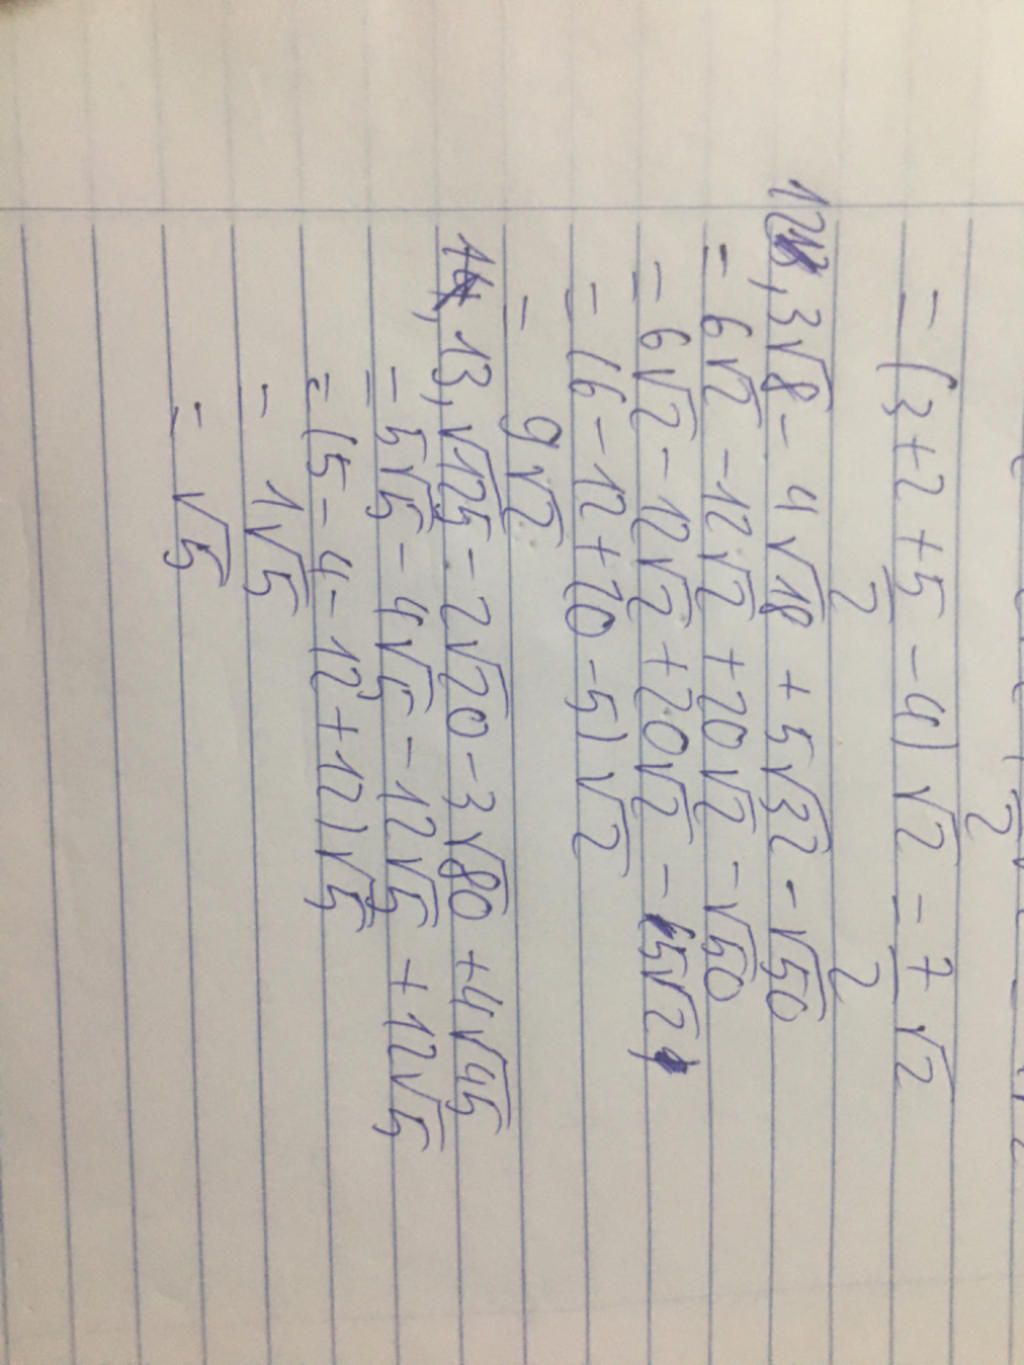 = (3 + 2 + 5/2 - 4) √2 = 7/2 √2
12, 3√8 - 4√18 + 5√32 - √50
= 6√2 - 12√2 + 20√2 - √50
= 6√2 - 12√2 + 20√2 - 5√2
= (6 - 12 + 20 - 5) √2
= 9√2
13, √125 - 2√20 - 3√80 + 4√45
= 5√5 - 4√5 - 12√5 + 12√5
= (5 - 4 - 12 + 12) √5
= 1√5
= √5